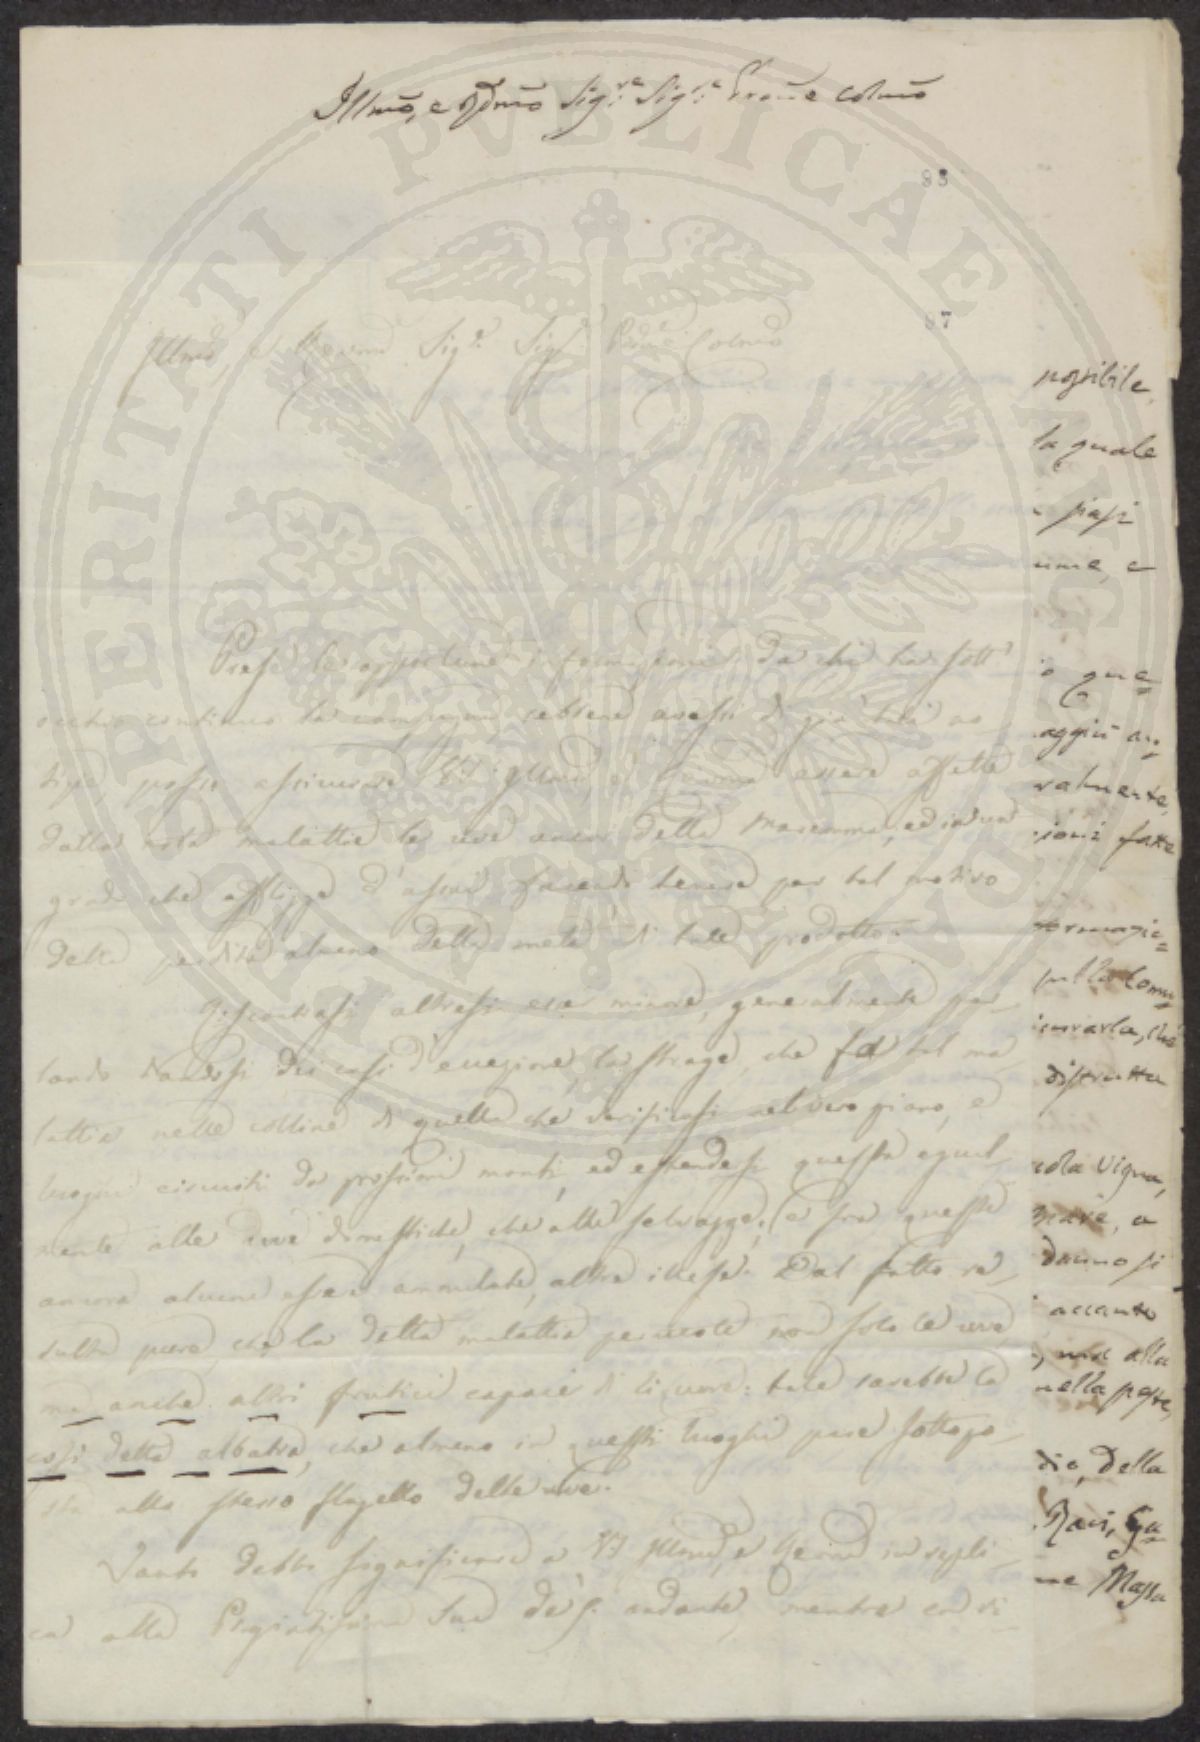 Illmo, e Rdmo Sigre Sigre Prone Colmo
88
87
Illmo, e Revmo Sigre Sigre Prone Colmo
Prese le opportune informazioni da chi ha sott'
occhio continuo la campagna, sebbene avessi di già tali no
tizie, posso assicurare VS Illma, e Revma essere affette
dalla nota malattia le uve ancor della Maremma, ed in un
grado che affligge d'assai facendo temere per tal motivo
della perdita almeno della metà di tale prodotto.
Riscontrasi altresì esser minore, generalmente par_
lando dandosi dei casi d'eccezione, la strage, che fa tal ma_
lattia nelle colline di quella che verificasi nel vero piano, e
luoghi circuiti da prossimi monti, ed estendersi questa egual_
mente alle uve dimestiche, che alle selvagge, e fra queste
ancora alcune esser annulate, altre illese. Dal fatto re_
sulta pure, che la detta malattia percuote non solo le uve
ma anche altri frutici capaci di liquore: tale sarebbe la
così detta albatra, che almeno in questi luoghi pare sottopo_
sta allo stesso flagello delle uve.
Tanto debbo significare a VS Illma, e Revma in repli_
ca alla Pregiatissima Sua de' 5. andante, mentre con di_
possibile,
la quale
siasi
ume, e
que=
aggiù an=
ralmente,
zioni fatte
formazio=
sulla Comu=
icurarla, che
distrutta
cola Vigna,
danno si
accanto
, ma alla
nella peste,
dio, della
Ravi, Ga=
ne Massa
SPERITATI PVBLICAE AVGENDAE